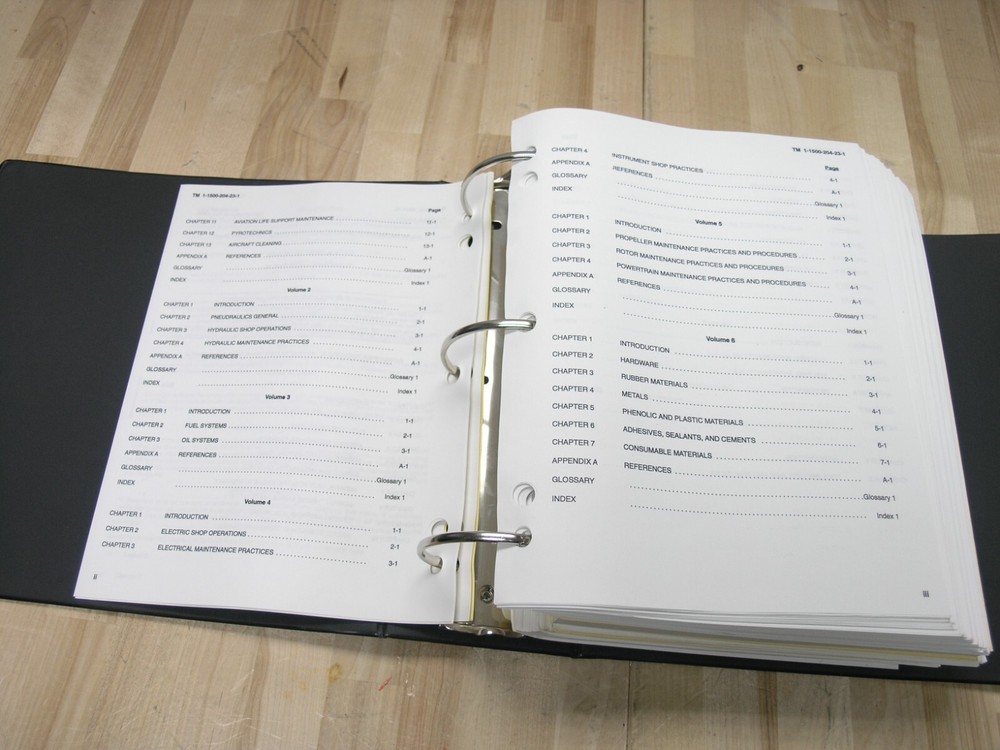 TM 1-1500-204-23-1
Page
CHAPTER 11 AVIATION LIFE SUPPORT MAINTENANCE 11-1
CHAPTER 12 PYROTECHNICS 12-1
CHAPTER 13 AIRCRAFT CLEANING 13-1
APPENDIX A REFERENCES A-1
GLOSSARY Glossary 1
INDEX Index 1
Volume 2
CHAPTER 1 INTRODUCTION 1-1
CHAPTER 2 PNEUDRAULICS GENERAL 2-1
CHAPTER 3 HYDRAULIC SHOP OPERATIONS 3-1
CHAPTER 4 HYDRAULIC MAINTENANCE PRACTICES 4-1
APPENDIX A REFERENCES A-1
GLOSSARY Glossary 1
INDEX Index 1
Volume 3
CHAPTER 1 INTRODUCTION 1-1
CHAPTER 2 FUEL SYSTEMS 2-1
CHAPTER 3 OIL SYSTEMS 3-1
APPENDIX A REFERENCES A-1
GLOSSARY Glossary 1
INDEX Index 1
Volume 4
CHAPTER 1 INTRODUCTION 1-1
CHAPTER 2 ELECTRIC SHOP OPERATIONS 2-1
CHAPTER 3 ELECTRICAL MAINTENANCE PRACTICES 3-1
ii
TM 1-1500-204-23-1
Page
CHAPTER 4 INSTRUMENT SHOP PRACTICES 4-1
APPENDIX A REFERENCES A-1
GLOSSARY Glossary 1
INDEX Index 1
Volume 5
CHAPTER 1 INTRODUCTION 1-1
CHAPTER 2 PROPELLER MAINTENANCE PRACTICES AND PROCEDURES 2-1
CHAPTER 3 ROTOR MAINTENANCE PRACTICES AND PROCEDURES 3-1
CHAPTER 4 POWERTRAIN MAINTENANCE PRACTICES AND PROCEDURES 4-1
APPENDIX A REFERENCES A-1
GLOSSARY Glossary 1
INDEX Index 1
Volume 6
CHAPTER 1 INTRODUCTION 1-1
CHAPTER 2 HARDWARE 2-1
CHAPTER 3 RUBBER MATERIALS 3-1
CHAPTER 4 METALS 4-1
CHAPTER 5 PHENOLIC AND PLASTIC MATERIALS 5-1
CHAPTER 6 ADHESIVES, SEALANTS, AND CEMENTS 6-1
CHAPTER 7 CONSUMABLE MATERIALS 7-1
APPENDIX A REFERENCES A-1
GLOSSARY Glossary 1
INDEX Index 1
iii